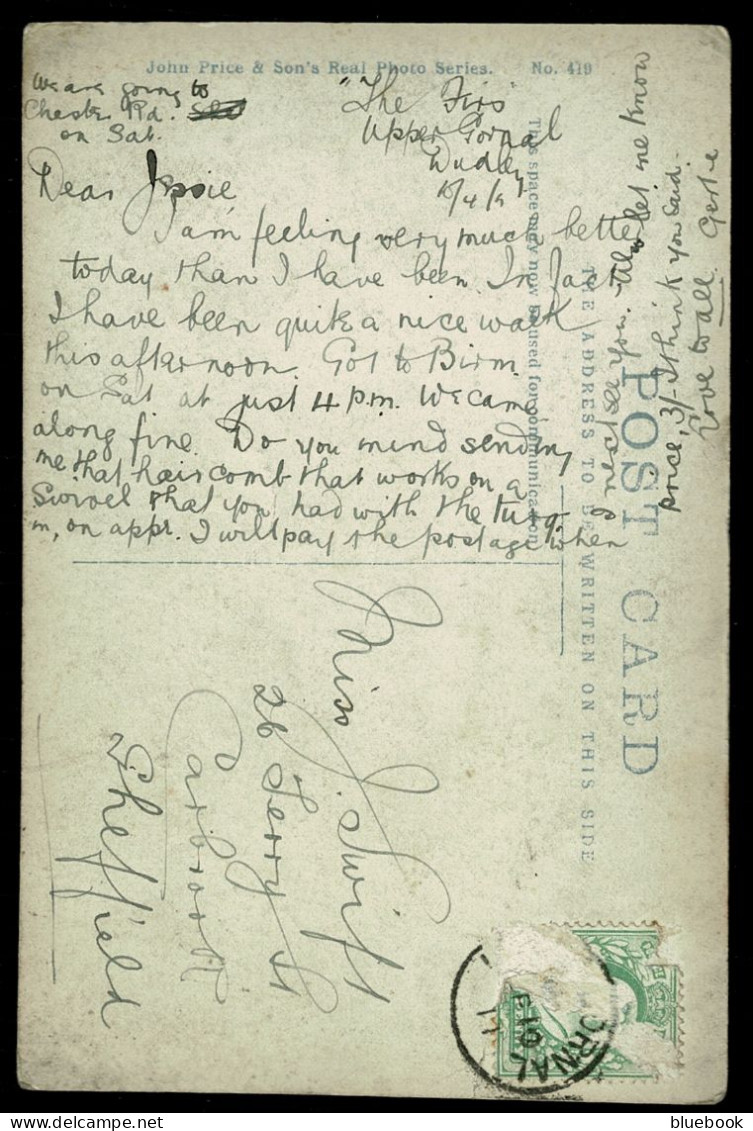 John Price & Son's Real Photo Series. No. 419
We are going to
Chester Rd.
on Sat.
"The Firs"
Upper Gornal
Dudley
Dear Jessie,
I am feeling very much better
today than I have been. In fact
I have been quite a nice walk
this afternoon. Got to Birm.
on Sat at just 4 p.m. We came
along fine. Do you mind sending
me that hair comb that works on a
swivel that you had with the
on appr. I will pay the postage when
I next see you. Also let me know
price, 3/- I think you said.
Love to all. Gertie
This space may now be used for communication
THE ADDRESS TO BE WRITTEN ON THIS SIDE
POST CARD
Miss J. Swift
26 Terry St
Carbrook
Sheffield
ORNAL
bluebook